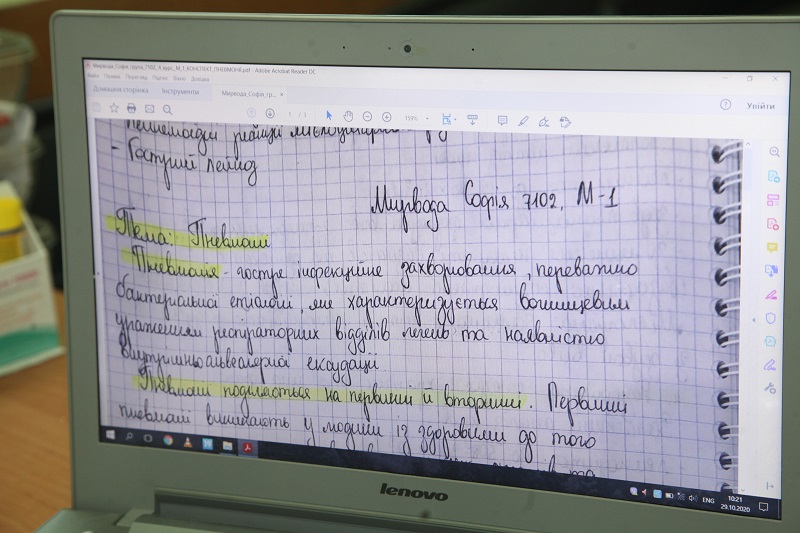 Мирвода_Софія_група_7102_4 курс_М_1_КОНСПЕКТ_ПНЕВМОНІЯ.pdf - Adobe Acrobat Reader DC
Файл Правка Перегляд Підпис Вікно Довідка
Домашня сторінка Інструменти Мирвода_Софія_гр... × Увійти
1 / 3 150%
- Гострий період
Мирвода Софія 7102, М-1
Тема: Пневмонії
Пневмонія - гостре інфекційне захворювання, переважно
бактеріальної етіології, яке характеризується вогнищевим
ураженням респіраторних відділів легень та наявністю
внутрішньоальвеолярної ексудації
Пневмонії поділяються на первинні й вторинні. Первинні
пневмонії виникають у людини із здоровими до того
та
ENG 10:21
29.10.2020
lenovo